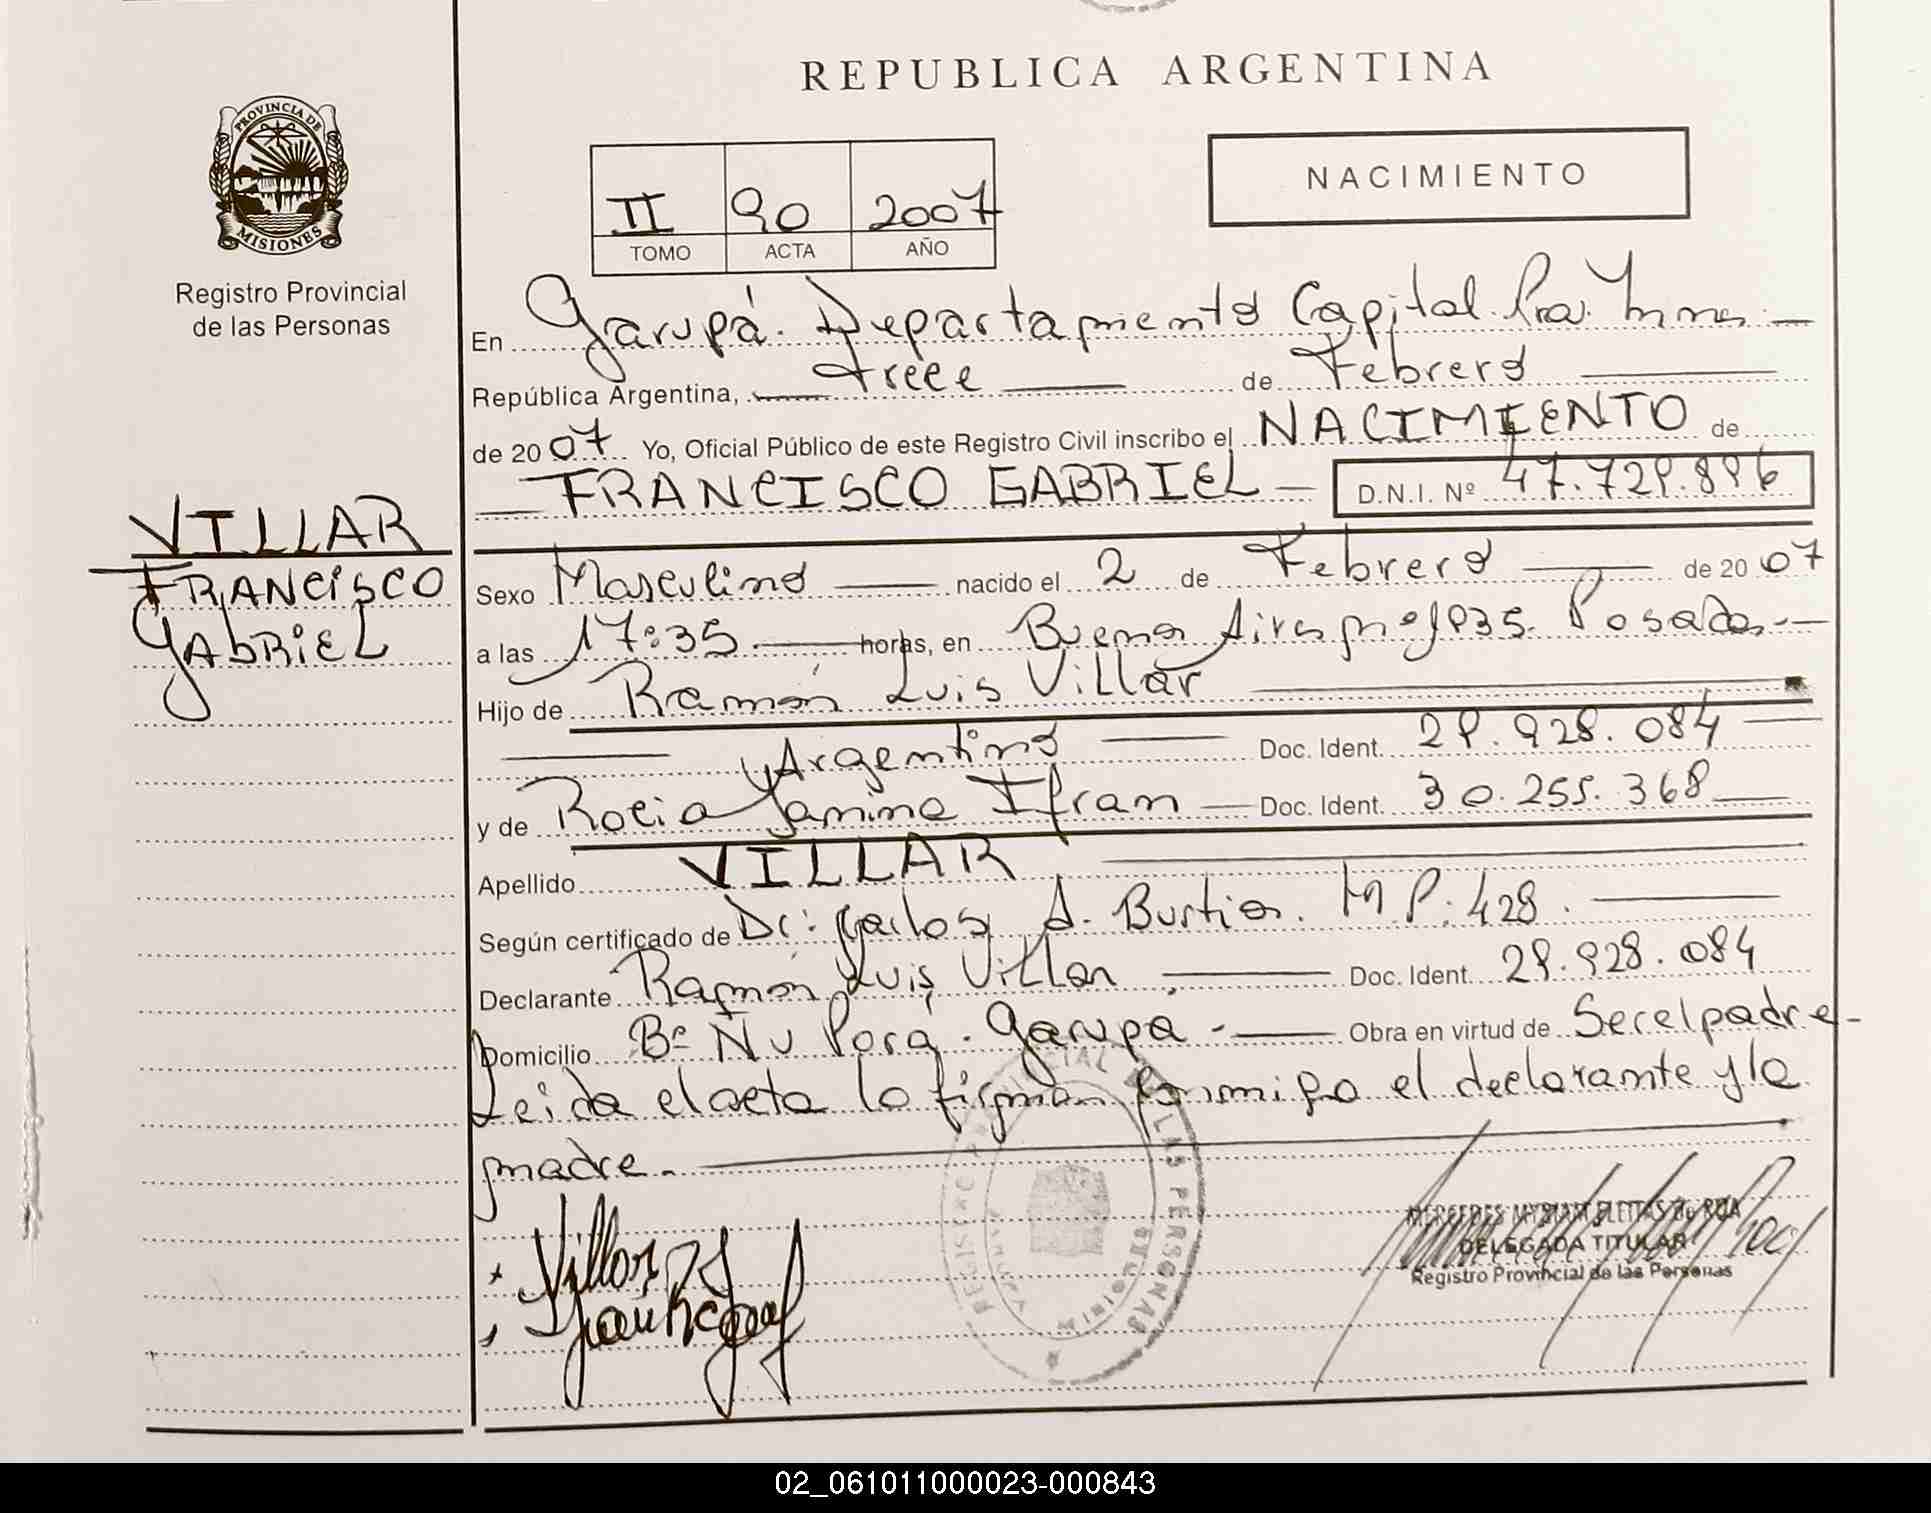 REPUBLICA ARGENTINA
PROVINCIA DE
MISIONES
Registro Provincial
de las Personas
NACIMIENTO
II 90 2007
TOMO ACTA AÑO
En Garupá. Departamento Capital. Pcia. Mnes.
República Argentina, trece de Febrero
de 2007 Yo, Oficial Público de este Registro Civil inscribo el NACIMIENTO de
FRANCISCO GABRIEL D.N.I. Nº 47.729.896
VILLAR
FRANCISCO
GABRIEL
Sexo Masculino nacido el 2 de Febrero de 2007
a las 17:35 horas, en Buenos Aires Posadas.
Hijo de Ramón Luis Villar
Argentino Doc. Ident. 29.928.084
y de Rocio Yanina Ifran Doc. Ident. 30.255.368
Apellido VILLAR
Según certificado de Dr: Carlos A. Bustios. M.P. 428.
Declarante Ramón Luis Villar Doc. Ident. 29.928.084
Domicilio Bº Ñu Porá. Garupá - Obra en virtud de Ser el padre-
Leida el acta la firman conmigo el declarante y la
madre.
REGISTRO PROVINCIAL DE LAS PERSONAS
MISIONES
Villar
MERCEDES MYRIAM FLEITAS de ROA
DELEGADA TITULAR
Registro Provincial de las Personas
02_061011000023-000843